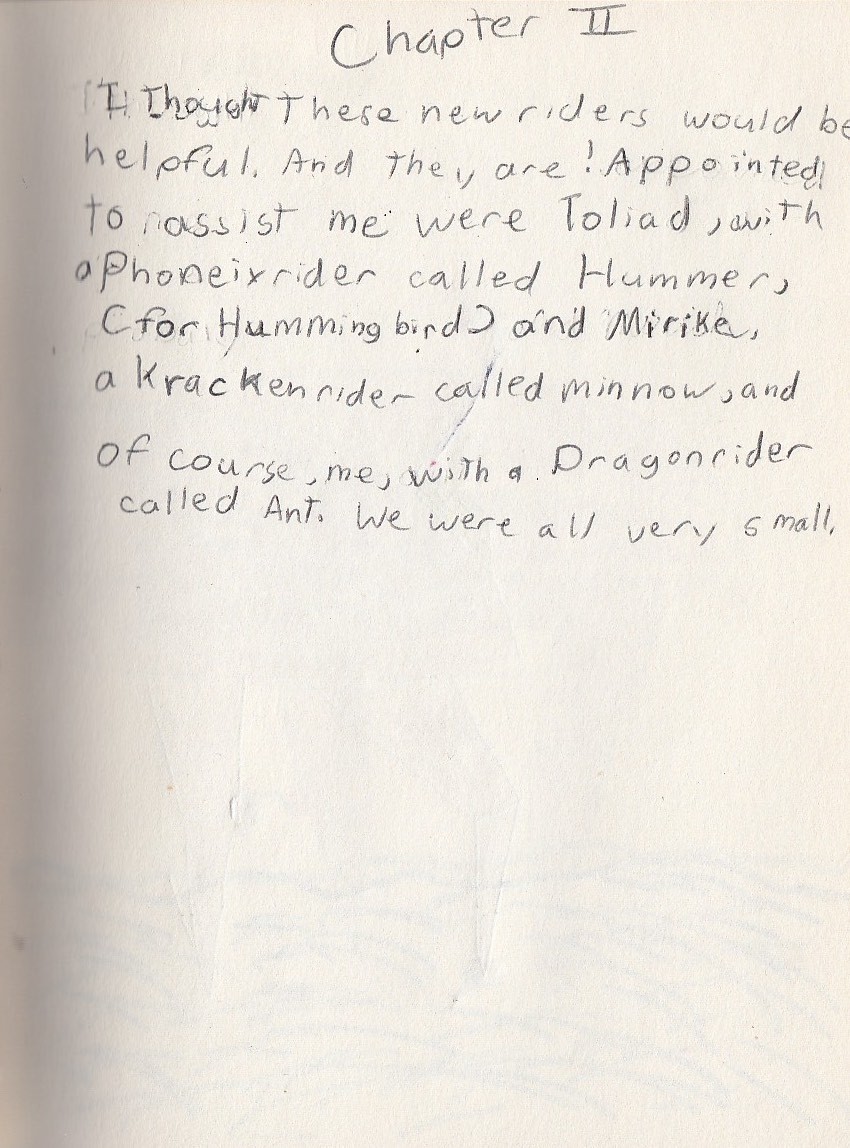 Chapter II
I Thought These new riders would be
helpful. And they are! Appointed
to assist me were Toliad, with
a Phoneix rider called Hummer,
(for Hummingbird) and Mirike,
a Kracken rider called minnow, and
of course, me, with a Dragonrider
called Ant. We were all very small.